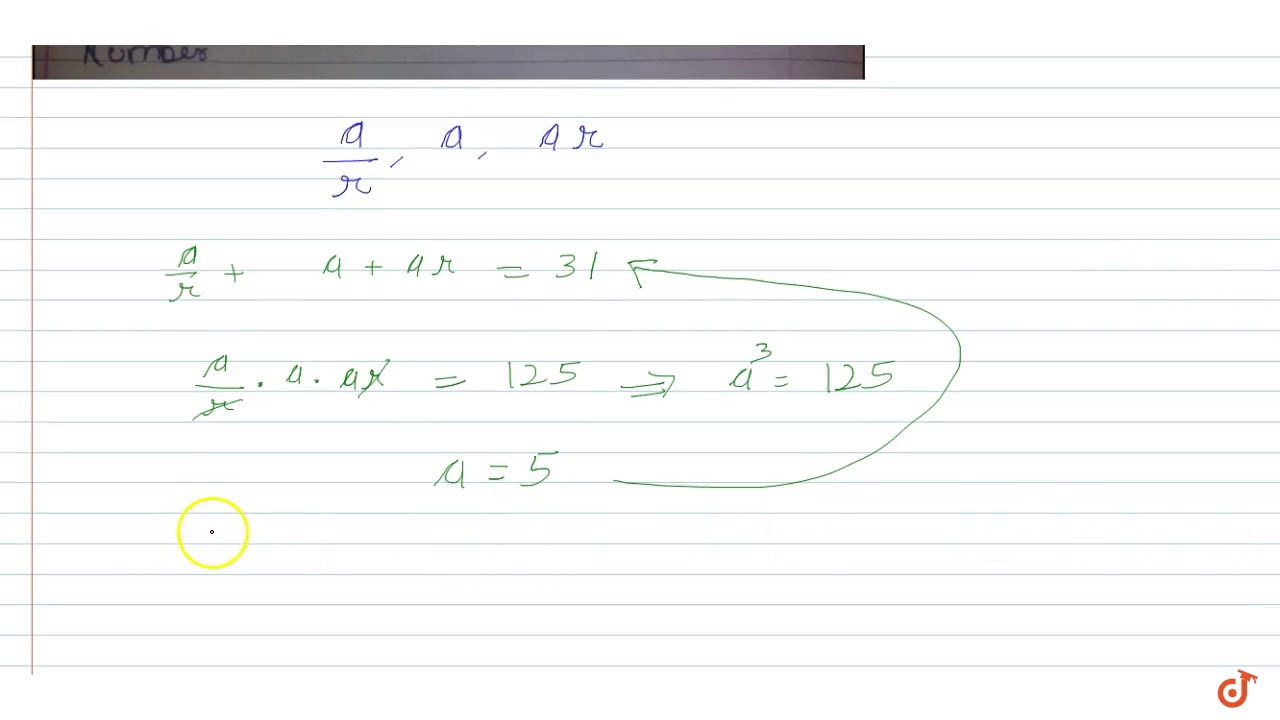 Number
a/r, a, ar
a/r + a + ar = 31
a/r · a · ar = 125 ⇒ a³ = 125
a = 5